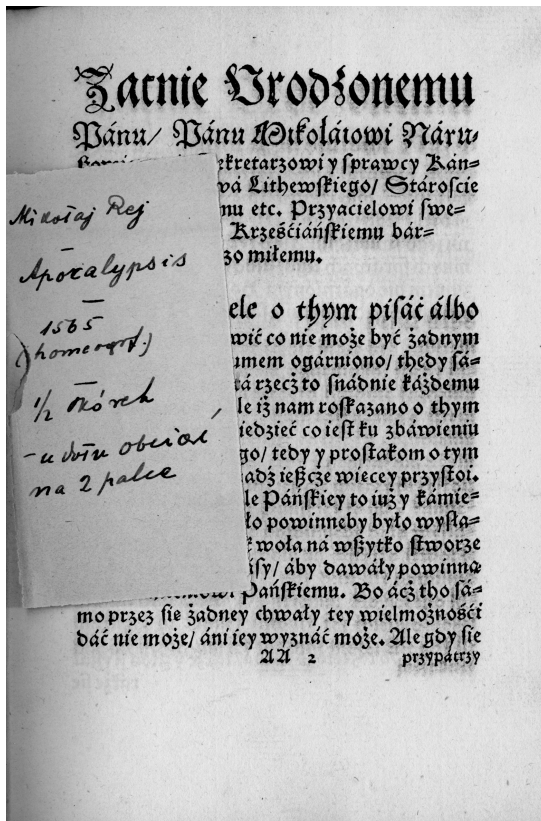 Zacnie Vrodzonemu
Pánu/ Pánu Mikołáiowi Náru-
ekretarzowi y sprawcy Kán-
wá Lithewskiego/ Stároscie
nu etc. Przyacielowi swe-
Krześćiáńskiemu bár-
zo miłemu.
ele o thym pisáć álbo
wić co nie może być żadnym
umem ogárniono/ thedy sá-
rá rzecż to snádnie káżdemu
le iż nam roskazano o thym
iedzieć co iest ku zbáwieniu
go/ tedy y prostakom o tym
adź ieszcże wiecey przystoi.
le Páńskiey to iuż y kámie-
ło powinneby było wysłá-
k woła ná wszytko stworze
ásy/ áby dawáły powinną
Páńskiemu. Bo ácż tho sá-
mo przez sie żadney chwały tey wielmożnośći
dáć nie może/ áni iey wyznáć może. Ale gdy sie
AA 2 przypátrzy
Mikołaj Rej
Apocalypsis
1565
1/2 skórek
- u dołu obciąć
na 2 palce